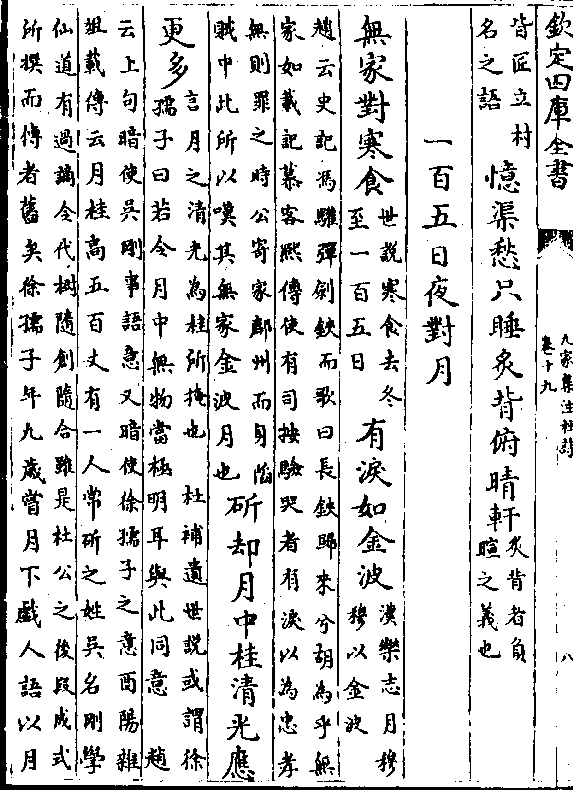 欽定四庫全書
九家集注杜詩
卷十九
八
皆匠立村
名之語
憶渠愁只睡炙背俯晴軒
炙背者負
暄之義也
一百五日夜對月
無家對寒食
世說寒食去冬
至一百五日
有淚如金波
漢樂志月穆
穆以金波
趙云史記馮驩彈劍鋏而歌曰長鋏歸來兮胡為乎無
家如載記慕容熈傳使有司按驗哭者有淚以為忠孝
無則罪之時公寄家鄜州而身陷
賊中此所以嘆其無家金波月也
斫却月中桂清光應
更多
言月之清光為桂所掩也 杜補遺世說或謂徐
孺子曰若令月中無物當極明耳與此同意 趙
云上句暗使吳剛事語意又暗使徐孺子之意酉陽雜
俎載傳云月桂髙五百丈有一人常斫之姓吳名剛學
仙道有過謫令伐樹隨創隨合雖是杜公之後段成式
所撰而傳者舊矣徐孺子年九歲嘗月下戲人語以月